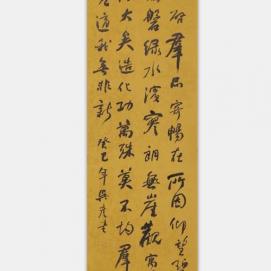 啟羣品寄暢在所因仰望碧
磐緑水濱寥朗無崖觀寓
大矣造化功萬殊莫不均羣
適我無非新
癸巳年